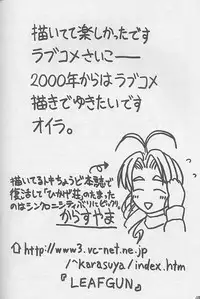 描いてて楽しかったです
ラブコメさいこー
2000年からはラブコメ
描きでゆきたいです
オイラ。
描いてるトキちょうど本誌で
復活して「ひなげ荘」のたまった
のはシンクロニシティぶりにビックリ
からすやま
⇧http://www3.vc-net.ne.jp
/~karasuya/index.htm
『LEAFGUN』